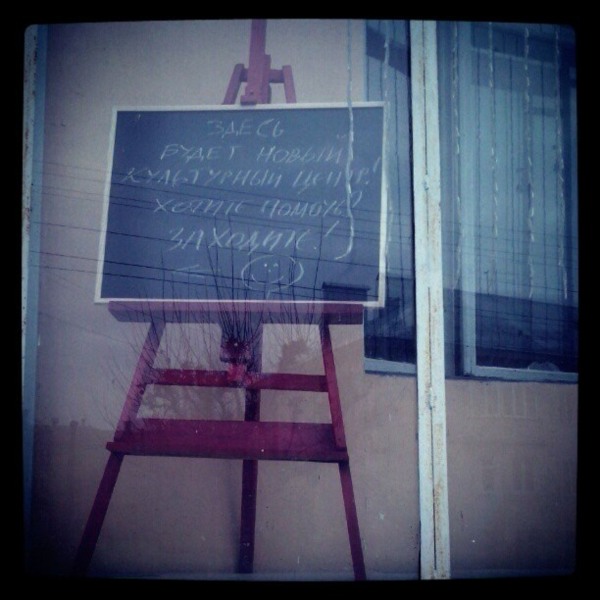 ЗДЕСЬ
БУДЕТ НОВЫЙ
КУЛЬТУРНЫЙ ЦЕНТР!
ХОТИТЕ ПОМОЧЬ?
ЗАХОДИТЕ!